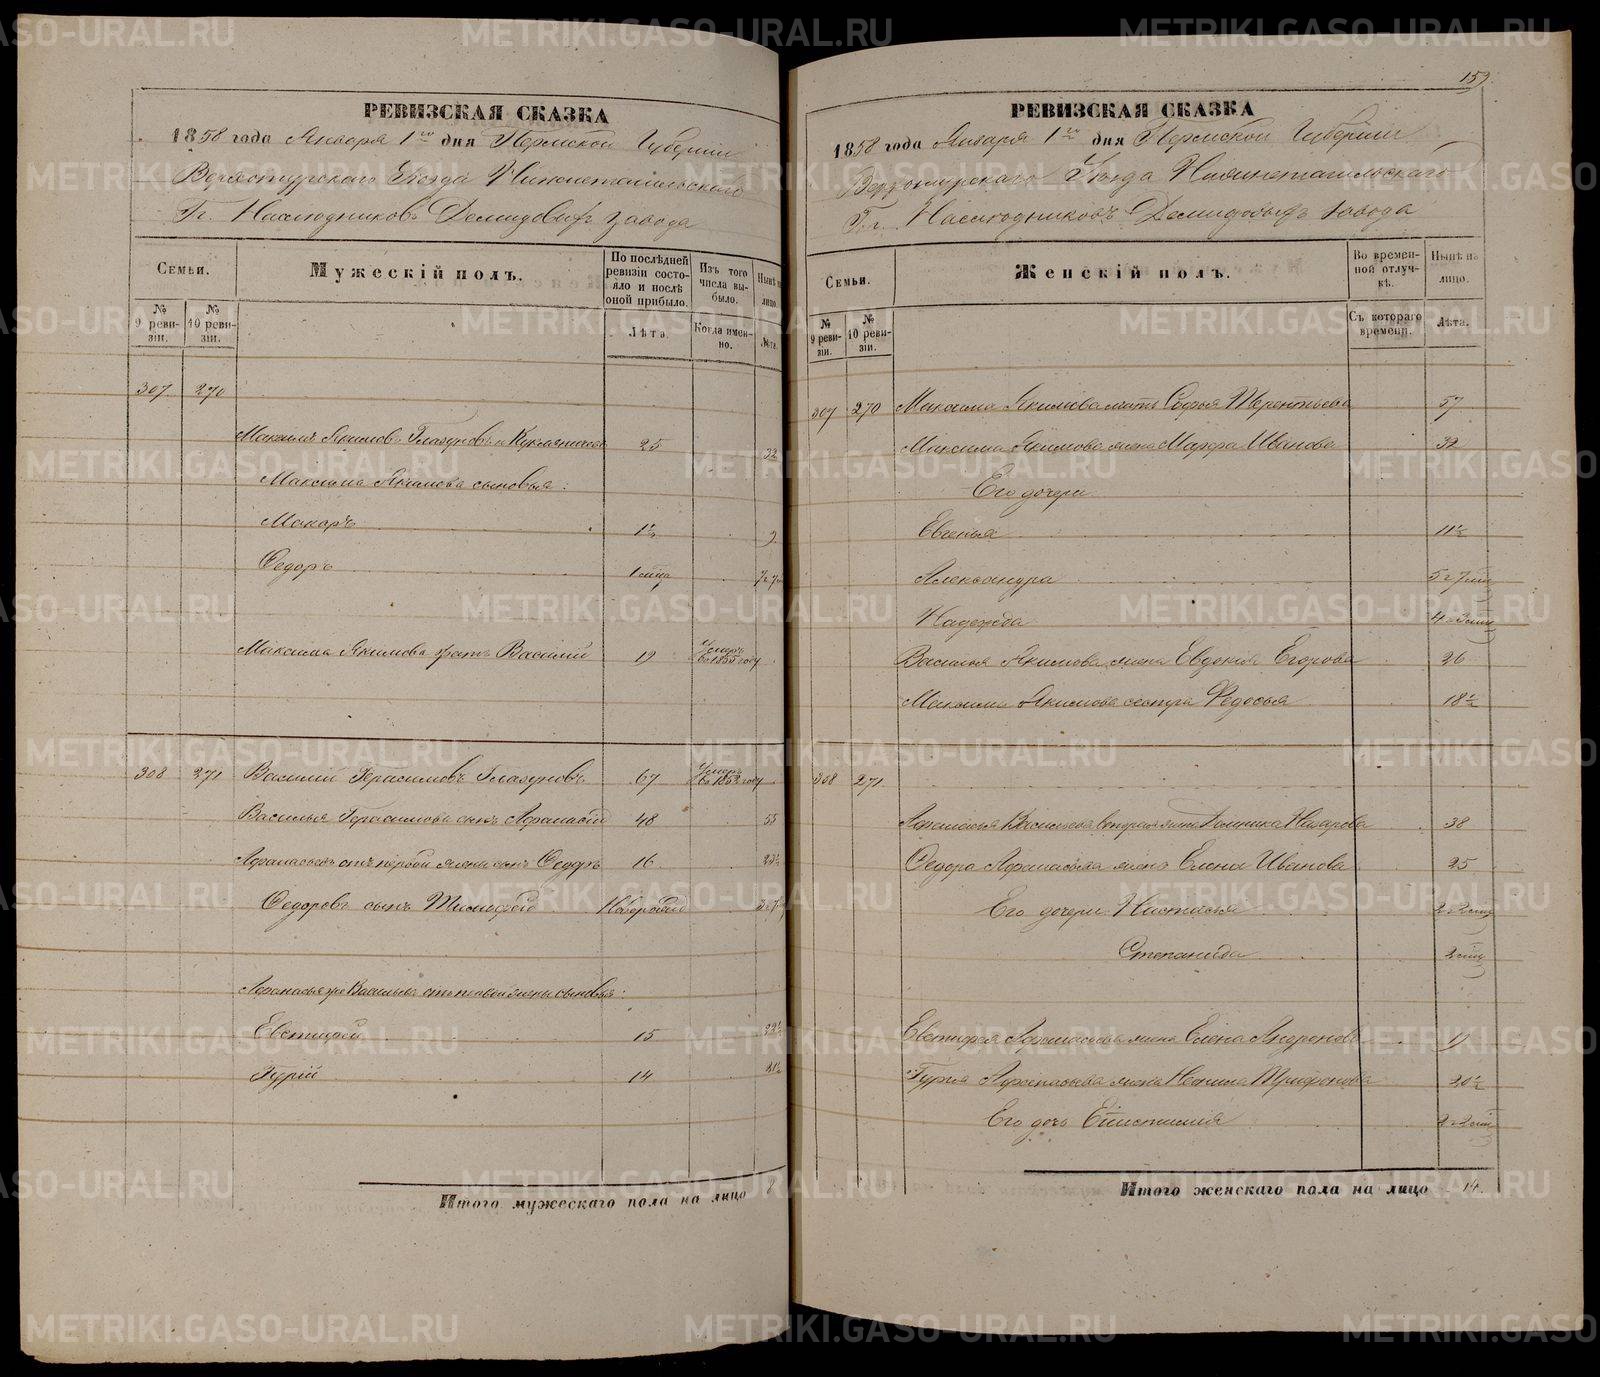 РЕВИЗСКАЯ СКАЗКА
1858 года Января 1го дня Пермской Губернии
Верхотурскаго Уезда Нижнетагильскаго
Гг. Наследниковъ Демидовыхъ завода
Семьи.
Мужескій полъ.
По послѣдней ревизіи состояло и послѣ оной прибыло.
Изъ того числа выбыло.
Нынѣ на лицо.
№ 9 ревизіи.
№ 10 ревизіи.
Лѣта.
Когда именно.
Лѣта.
307 270
Максимъ Якимовъ Глазуновъ 25 32
Максима Якимова сыновья:
Макаръ 1½ 9
Федоръ 1 мѣс.
Максима Якимова братъ Василій 19 Умеръ въ 1855 году
308 271 Василій Герасимовъ Глазуновъ 67 Умеръ въ 1852 году
Василья Герасимова сынъ Афанасій 48 55
Афанасьевъ отъ первой жены сынъ Федоръ 16 23½
Федоровъ сынъ Тимофей Новорожд.
Афанасья Васильева отъ первой жены сыновья:
Евстифей 15 22½
Гурій 14 21½
Итого мужескаго пола на лицо 8
159.
РЕВИЗСКАЯ СКАЗКА
1858 года Января 1го дня Пермской Губерніи
Верхотурскаго Уѣзда Нижнетагильскаго
Гг. Наслѣдниковъ Демидовыхъ завода
Семьи.
Женскій полъ.
Во временной отлучкѣ.
Нынѣ на лицо.
№ 9 ревизіи.
№ 10 ревизіи.
Съ котораго времени.
Лѣта.
307 270 Максима Якимова мать Софья Терентьева 57
Максима Якимова жена Марфа Иванова 32
Его дочери
Евгенья 11½
Александра 5 и 7 мѣс.
Надежда
Василья Якимова жена Евдокія Егорова 26
Максима Якимова сестра Федосья 18½
308 271
Афанасья Васильева вторая жена Домника Назарова 38
Федора Афанасьева жена Елена Иванова 25
Его дочери Настасья 2 и 2 мѣс.
Степанида 2 мѣс.
Евстифея Афанасьева жена Елена
Гурія Афанасьева жена Ненила Трифонова 20½
Его дочь Епистимія 2 и 2 мѣс.
Итого женскаго пола на лицо 14.
METRIKI.GASO-URAL.RU